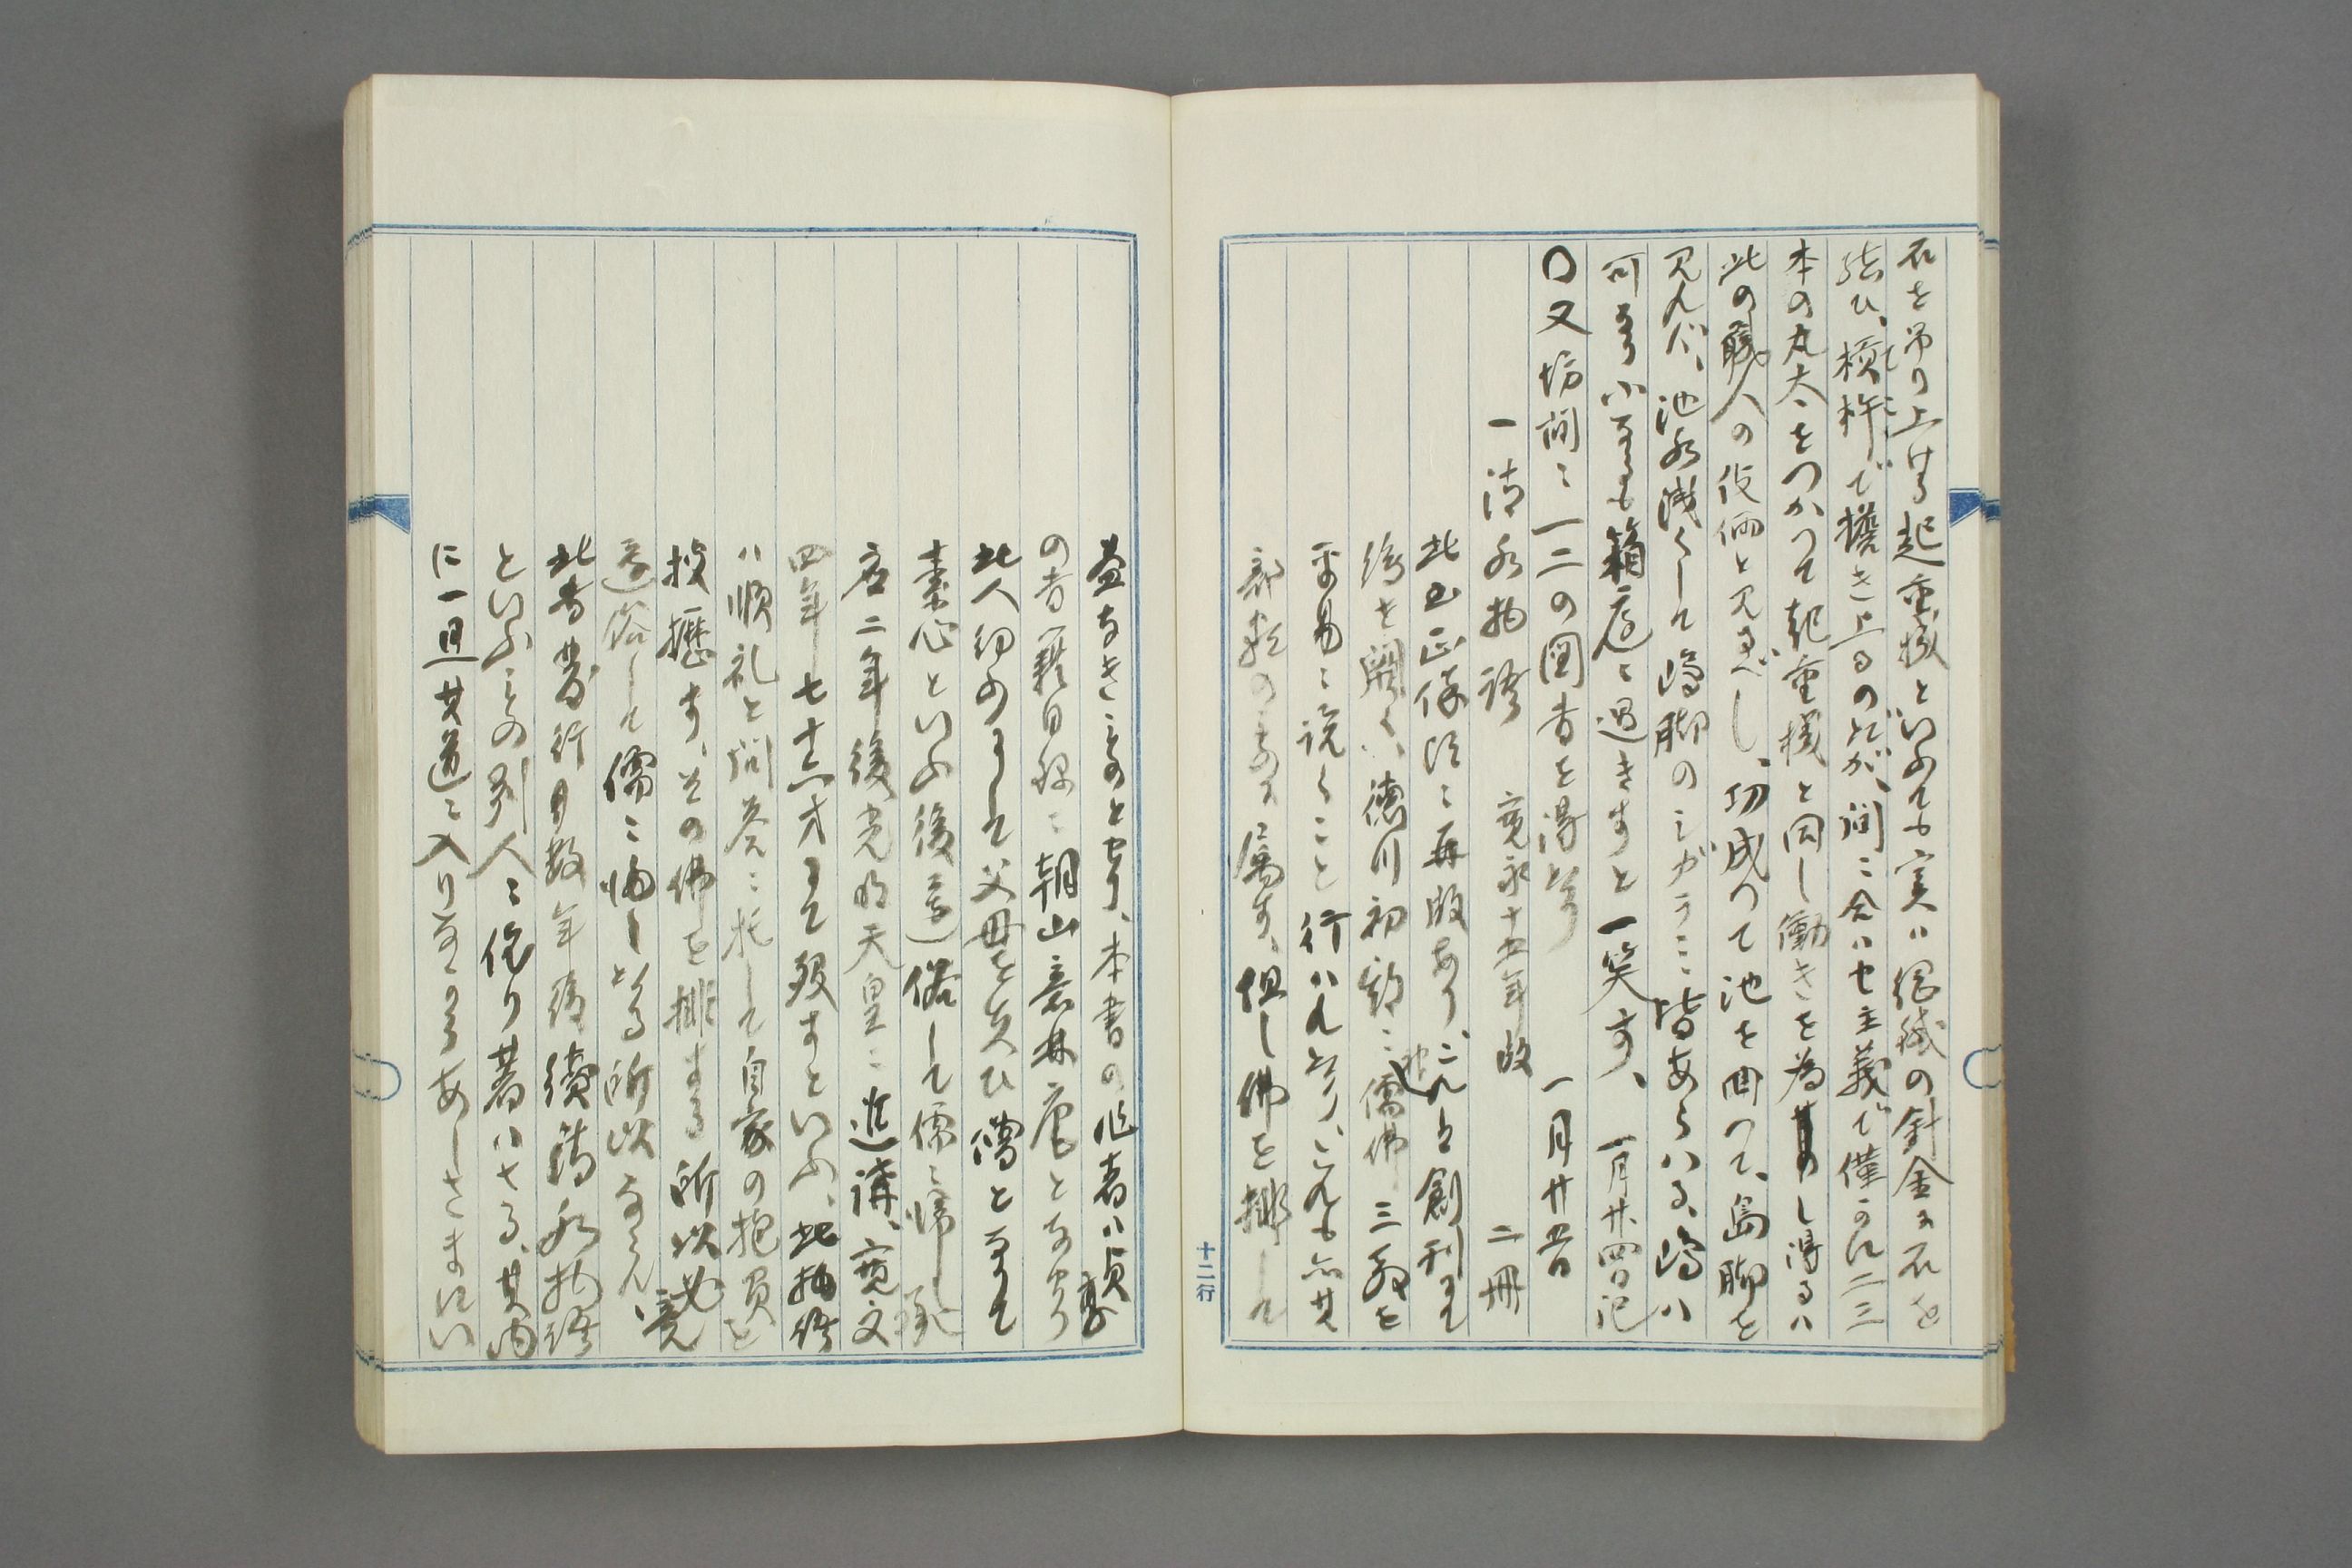 石を吊り上げる起重機といふても実ハ鋼鉄の針金ニ石を
結ひ、槓杆で攩き上るのだが、間ニ合ハせ主義で僅かに二三
本の丸太をつかつて起重機と同し働きを為し得るハ
此の職人の伎倆と見るべし、功成つて池を回つて、島脚を
見れバ、池水浅くして嶋脚のシガラミ皆あらハる、嶋ハ
可なり小なるも箱庭ニ過きすと一笑す、 一月廿四日記
〇又坊間ニ一二の図書を得たり 一月廿五日
一清水物語 寛永十五年版 二冊
此書正保頃ニ再版あり、これは創刊にて
後を闕く、徳川初期ニ儒佛三教を
平易ニ説くこと行ハれたり、これも亦其
部類のものニ属す、但し佛を排して
益なきものとせり、本書の作者ハ貞享
の書籍目録ニ朝山意林庵とあり
此人幼少にして父母を失ひ僧となりて
素心といふ後還俗して儒ニ帰し承
応二年後光明天皇ニ進講、寛文
四年七十六才にて殁すといふ、此物語
ハ順礼と問答ニ托して自家の抱負を
披攊す、その佛を排する所以必竟
還俗して儒ニ帰したる所以ならん、
此書発行数年後続清水物語
といふもの別人ニ依り著ハさる、其内
に一旦其道ニ入りなからあしさまにい
十二行